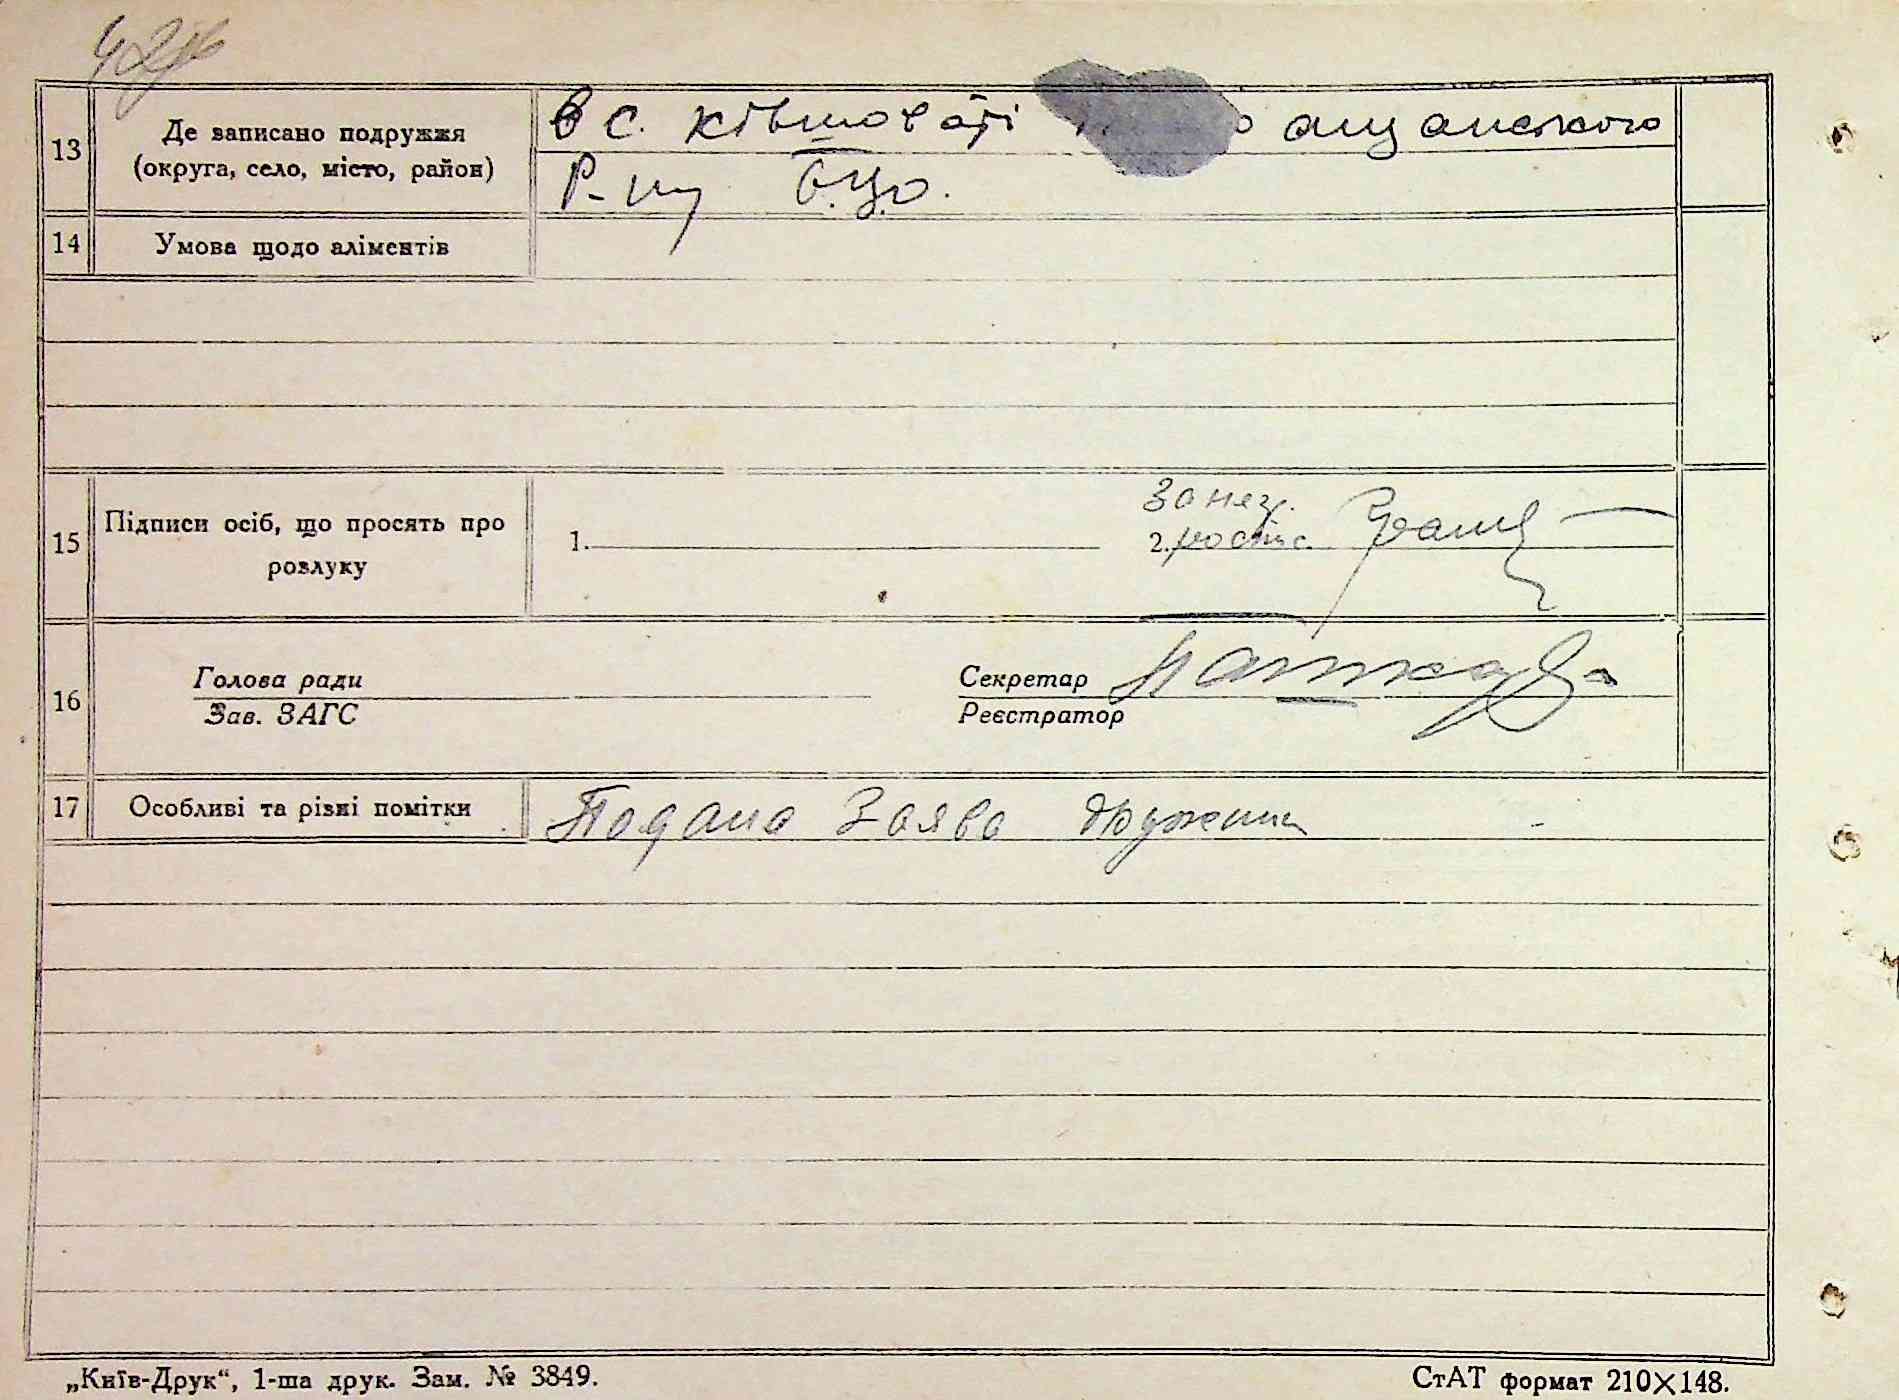 13 Де записано подружжя
(округа, село, місто, район)
в с. Ківшоваті ащанського
р-ну Б.Ц.о.
14 Умова щодо аліментів
15 Підписи осіб, що просять про
розлуку
1.
За нез.
2. розпис.
16 Голова ради
Зав. ЗАГС
Секретар
Реєстратор
17 Особливі та різні помітки
Подана Заява дружини
„Київ-Друк“, 1-ша друк. Зам. № 3849.
СтАТ формат 210×148.